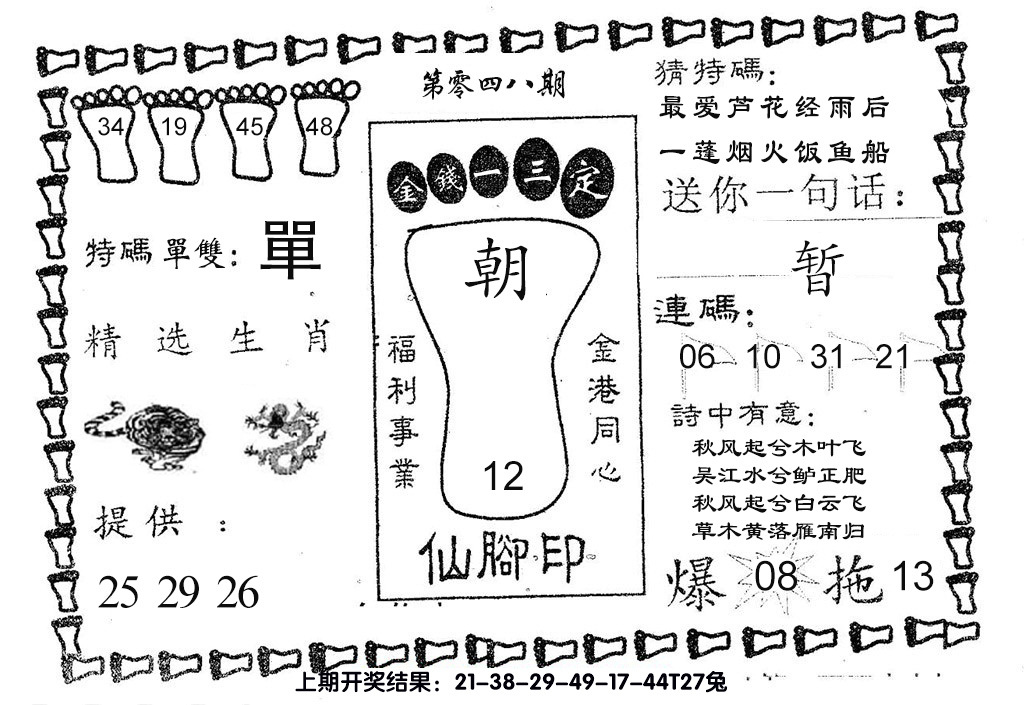 第零四八期
34 19 45 48
特碼單雙：單
精选生肖
提供：
25 29 26
金錢一三定
朝
福利事業
金港同心
12
仙腳印
猜特碼：
最爱芦花经雨后
一蓬烟火饭鱼船
送你一句话：
暂
連碼：
06 10 31 21
詩中有意：
秋风起兮木叶飞
吴江水兮鲈正肥
秋风起兮白云飞
草木黄落雁南归
爆 08 拖 13
上期开奖结果：21-38-29-49-17-44T27兔